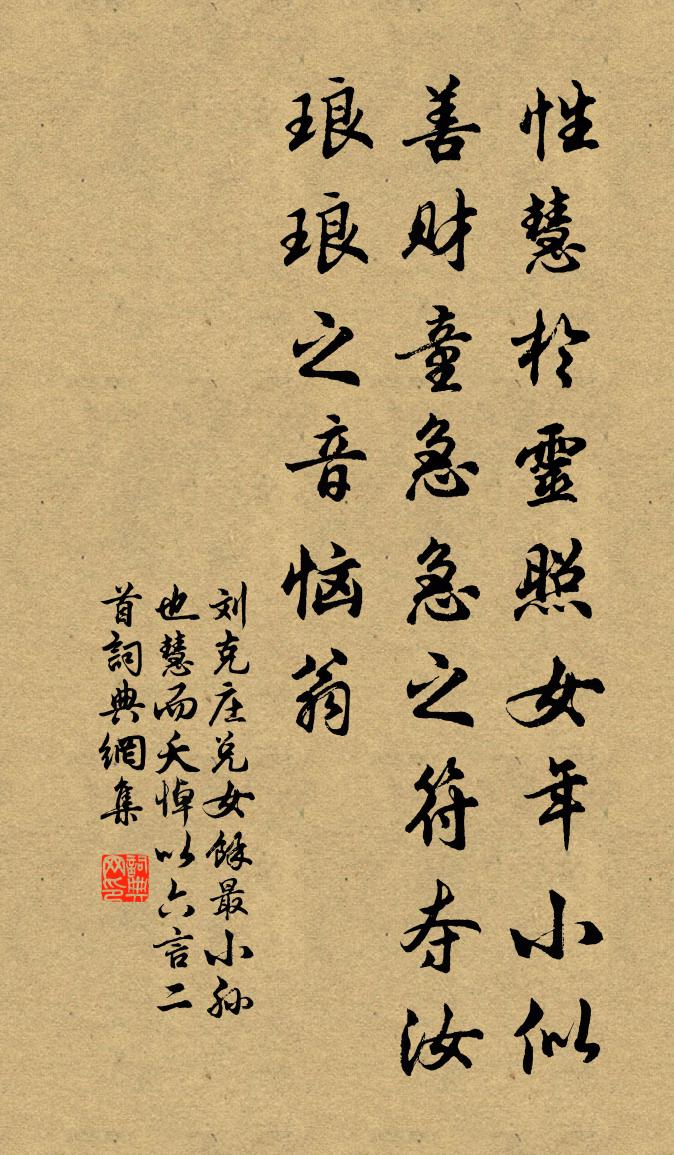 性慧於靈照女年小似
善财童急急之符夺汝
琅琅之音恼翁
刘克庄兑女馀最小孙
也慧而夭悼以六言二
首詞典網集
詞典
网印